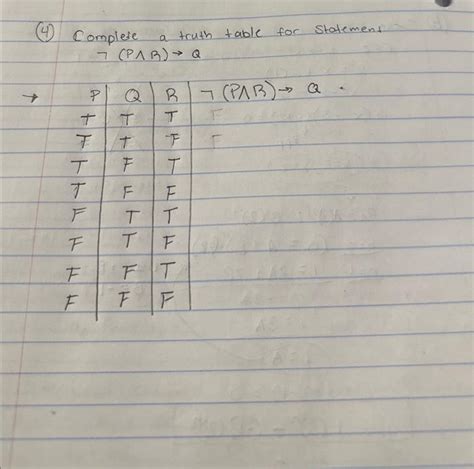 ④ Complete a truth table for Statement
¬ (P∧R) → Q
→ P Q R ¬ (P∧R) → Q .
T T T F
T T F F
T F T
T F F
F T T
F T F
F F T
F F F